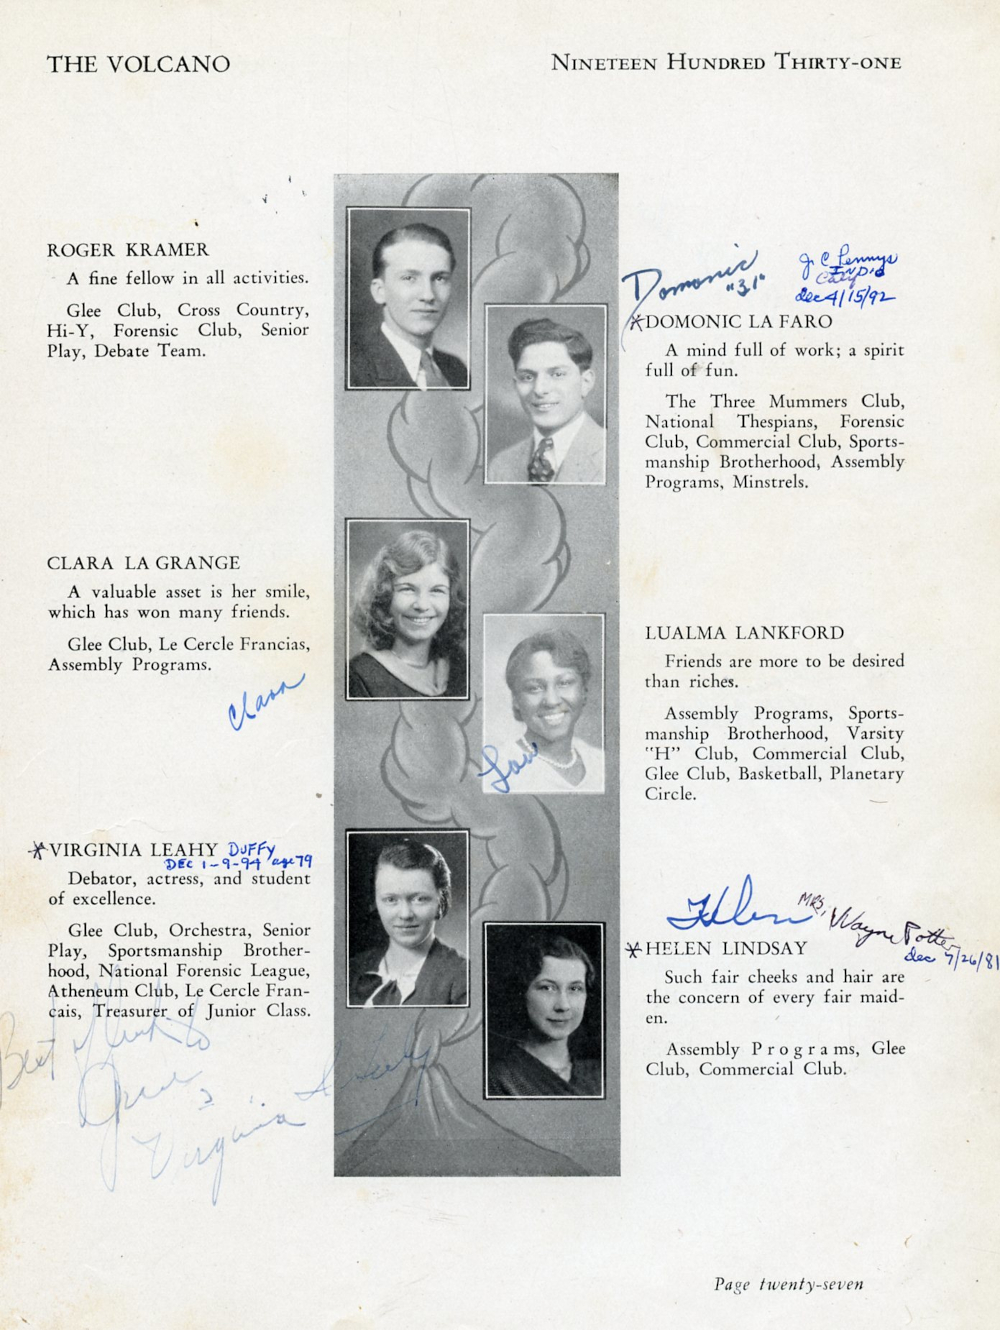 THE VOLCANO
NINETEEN HUNDRED THIRTY-ONE
ROGER KRAMER
A fine fellow in all activities.
Glee Club, Cross Country,
Hi-Y, Forensic Club, Senior
Play, Debate Team.
Domonic
"31"
J. C. Pennys
dec 4/15/92
*DOMONIC LA FARO
A mind full of work; a spirit
full of fun.
The Three Mummers Club,
National Thespians, Forensic
Club, Commercial Club, Sports-
manship Brotherhood, Assembly
Programs, Minstrels.
CLARA LA GRANGE
A valuable asset is her smile,
which has won many friends.
Glee Club, Le Cercle Francias,
Assembly Programs.
Clara
LUALMA LANKFORD
Friends are more to be desired
than riches.
Assembly Programs, Sports-
manship Brotherhood, Varsity
"H" Club, Commercial Club,
Glee Club, Basketball, Planetary
Circle.
*VIRGINIA LEAHY DUFFY
DEC 1-9-94 age 79
Debator, actress, and student
of excellence.
Glee Club, Orchestra, Senior
Play, Sportsmanship Brother-
hood, National Forensic League,
Atheneum Club, Le Cercle Fran-
cais, Treasurer of Junior Class.
Best
Virginia
Helen
MRS. Wayne Potter
dec 7/26/81
*HELEN LINDSAY
Such fair cheeks and hair are
the concern of every fair maid-
en.
Assembly Programs, Glee
Club, Commercial Club.
Page twenty-seven